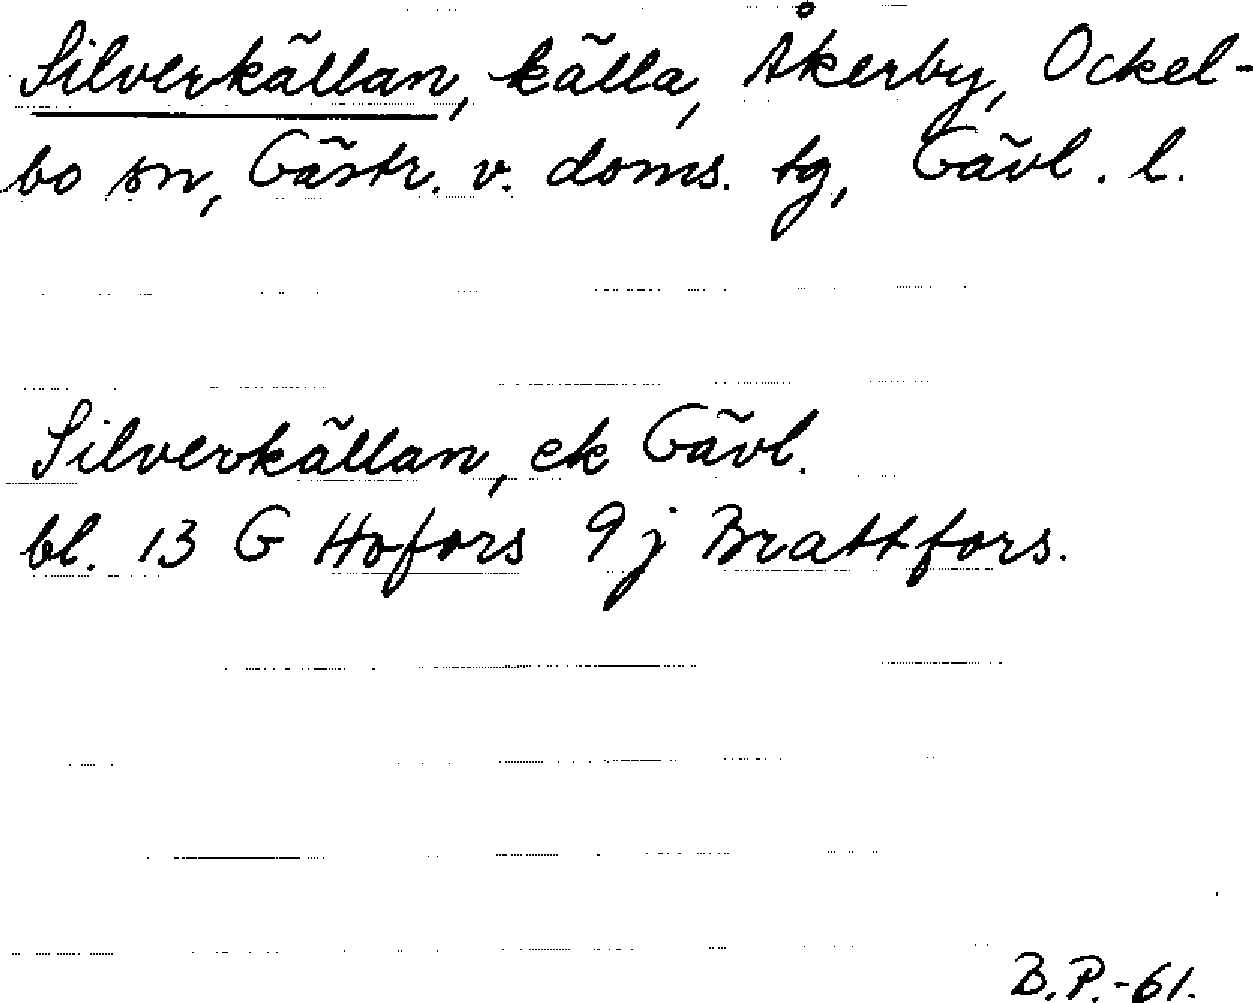 Silverkällan, källa, Åkerby, Ockel-
bo sn, Gästr. v. doms. tg, Gävl. l.
Silverkällan, ek Gävl.
bl. 13 G Hofors 9 j Brattfors.
B.P.-61.